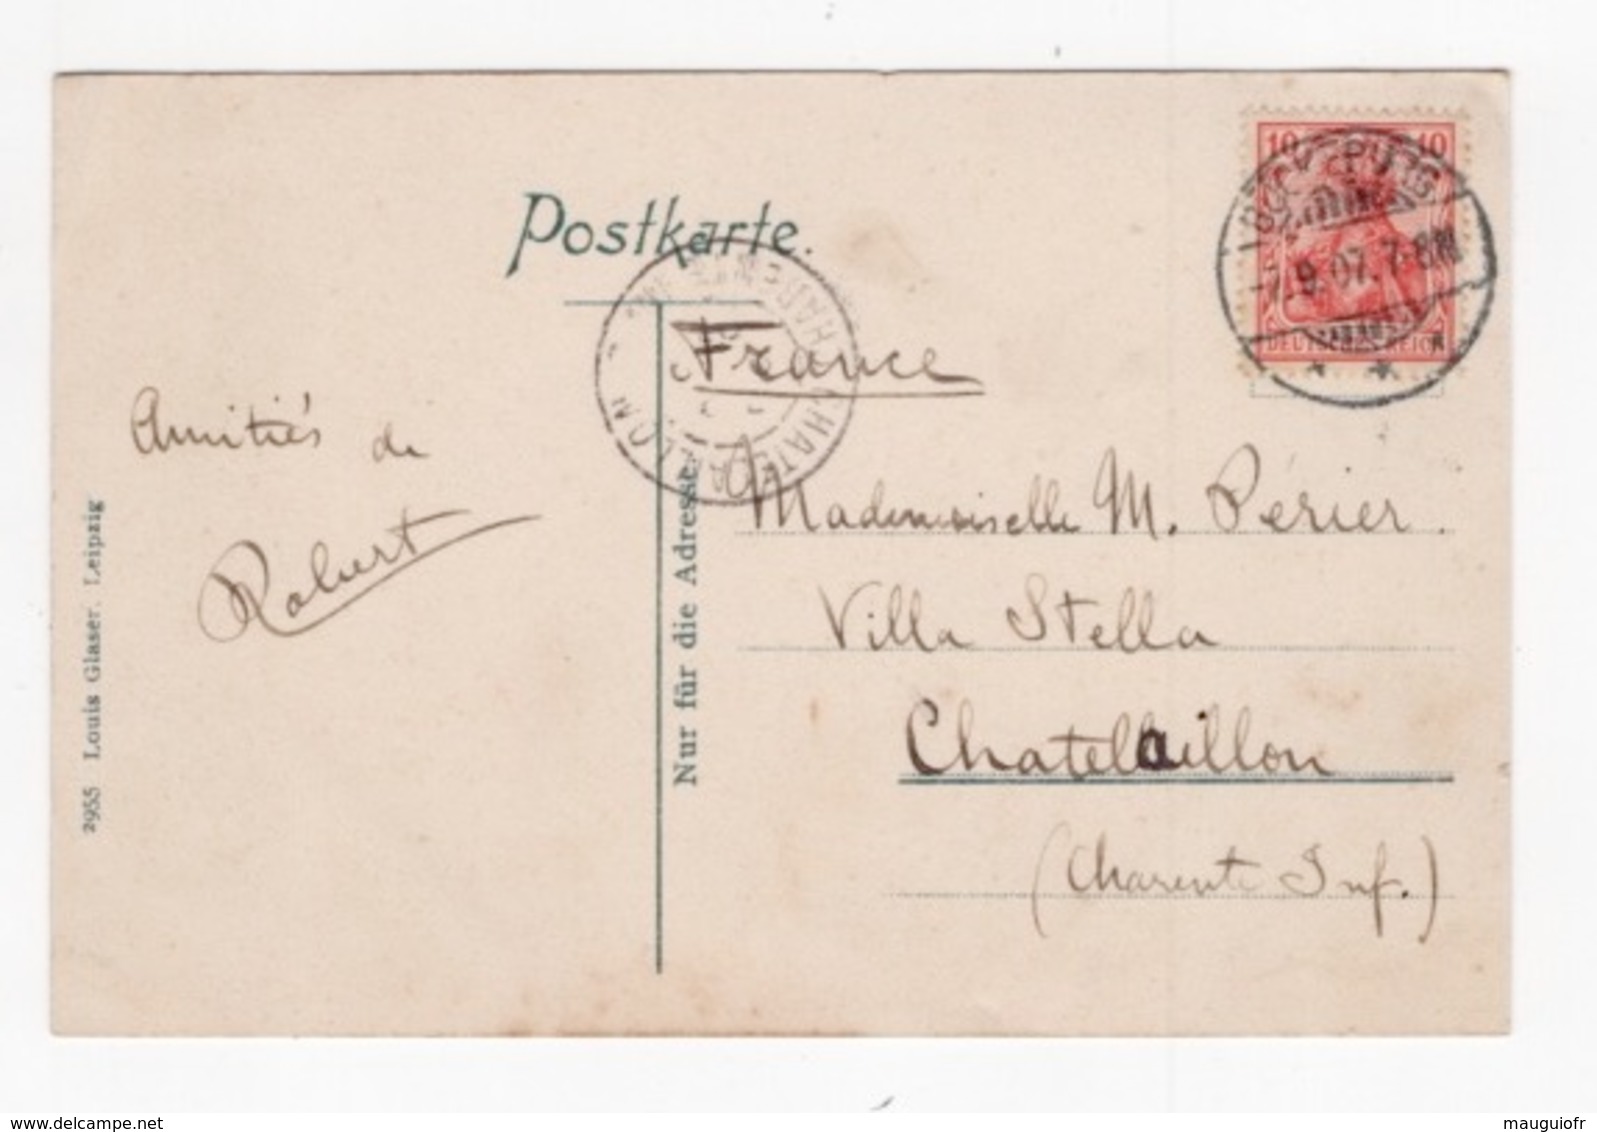 Postkarte.
10 10
7.9.07. 7-8N
DEUTSCHES REICH
CHATELAILLON
France
Amitiés de
Robert
Mademoiselle M. Périer.
Villa Stella
Chatelaillon
(Charente Inf.)
Nur für die Adresse.
2955 Louis Glaser, Leipzig
www.delcampe.net
mauguiofr